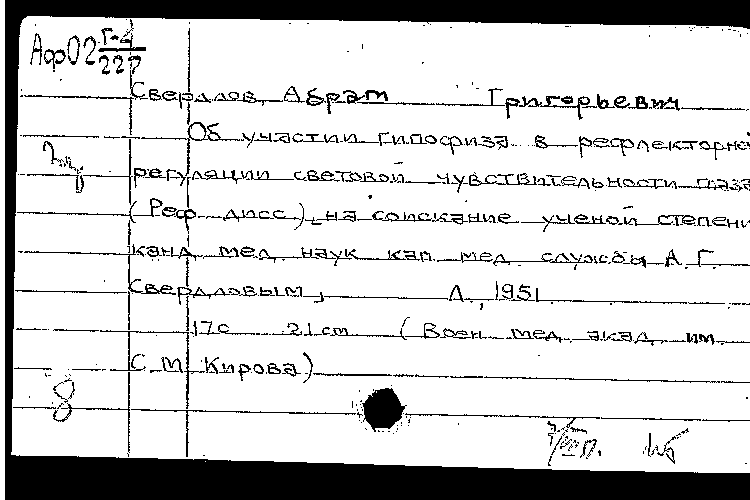 Афо2 Г-4
227
Свердлов, Абрам Григорьевич
Об участии гипофиза в рефлекторной
регуляции световой чувствительности глаза
(Реф дисс) на соискание ученой степени
канд мед наук кап мед службы А. Г.
Свердловым, Л., 1951
17с 21 cm (Воен мед акад им.
С. М Кирова)
8